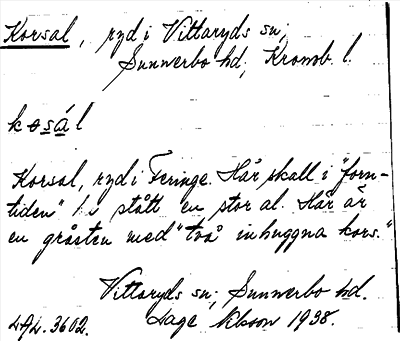 Korsal, ryd i Vittaryds sn;
Sunnerbo hd; Kronob. l.
kosál
Korsal, ryd i Feringe. Här skall i "forn-
tiden" stått en stor al. Här är
en gråsten med "två inhuggna kors."
Vittaryds sn; Sunnerbo hd.
LAL. 3602. Lage 1938.